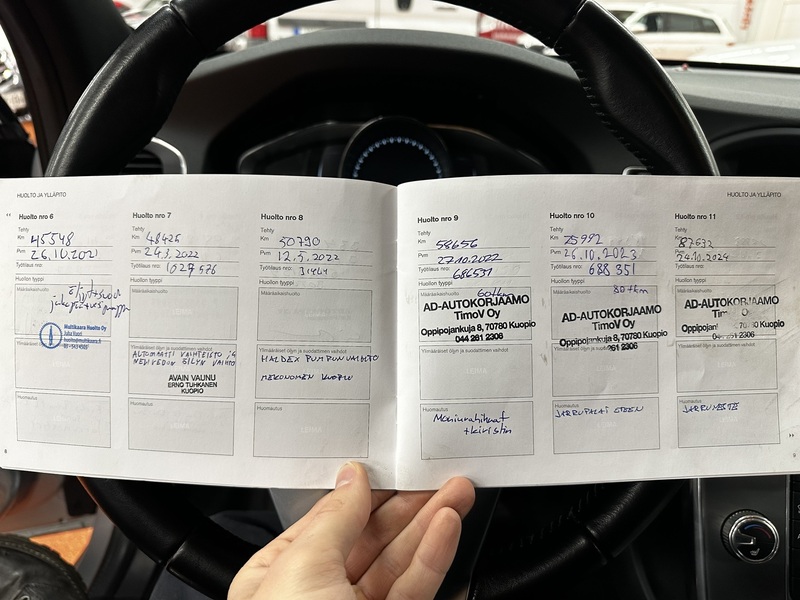 HUOLTO JA YLLÄPITO
Huolto nro 6
Tehty
Km 45548
Pvm 26.10.2021
Työtilaus nro.
Huollon tyyppi
Määräaikaishuolto
Multikaara Huolto Oy
Ylimääräiset öljyn ja suodattimen vaihdot
Huomautus
8
Huolto nro 7
Tehty
Km 48426
Pvm 24.3.2022
Työtilaus nro. 1027576
Huollon tyyppi
Määräaikaishuolto
LEIMA
Ylimääräiset öljyn ja suodattimen vaihdot
AUTOMAATTI VAIHTEISTO JA
NELIVEDON ÖLJYN VAIHTO
AVAIN VAUNU
ERNO TUHKANEN
KUOPIO
Huomautus
Huolto nro 8
Tehty
Km 50790
Pvm 12.5.2022
Työtilaus nro. 31464
Huollon tyyppi
Määräaikaishuolto
LEIMA
Ylimääräiset öljyn ja suodattimen vaihdot
HALDEX PUMPUN VAIHTO
MEKONOMEN KUOPIO
Huomautus
HUOLTO JA YLLÄPITO
Huolto nro 9
Tehty
Km 58656
Pvm 27.10.2022
Työtilaus nro. 686531
Huollon tyyppi
60tkm
Määräaikaishuolto
AD-AUTOKORJAAMO
TimoV Oy
Oppipojankuja 8, 70780 Kuopio
044 261 2306
Ylimääräiset öljyn ja suodattimen vaihdot
LEIMA
Huomautus
Moniurahihnat
+kiristin
Huolto nro 10
Tehty
Km 75992
Pvm 26.10.2023
Työtilaus nro. 688 351
Huollon tyyppi
80tkm
Määräaikaishuolto
AD-AUTOKORJAAMO
TimoV Oy
Oppipojankuja 8, 70780 Kuopio
261 2306
Ylimääräiset öljyn ja suodattimen vaihdot
Huomautus
JARRUPALAT ETEEN
Huolto nro 11
Tehty
Km 87632
Pvm 24.10.2024
Työtilaus nro.
Huollon tyyppi
Määräaikaishuolto
AD-AUTOKORJAAMO
TimoV Oy
Kuopio
2306
Ylimääräiset öljyn ja suodattimen vaihdot
Huomautus
JARRUNESTE
9